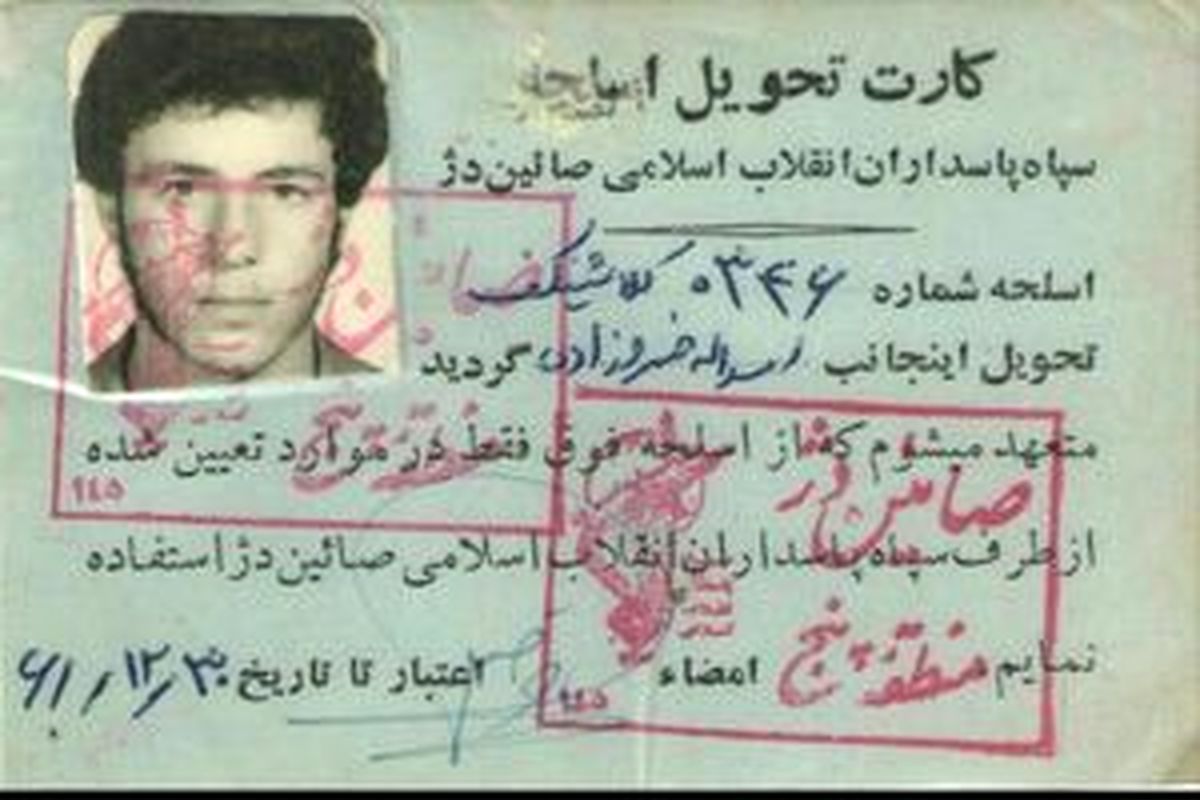 کارت تحویل اسلحه
سپاه پاسداران انقلاب اسلامی صائین دژ
اسلحه شماره ۰۳۴۶ کلاشینکف
تحویل اینجانب خسروزاده گردید
متعهد میشوم که از اسلحه فوق فقط در موارد تعیین شده
از طرف سپاه پاسداران انقلاب اسلامی صائین دژ استفاده
نمایم امضاء اعتبار تا تاریخ ۶۱/۱۲/۳۰
صائین دژ
منطقه پنج
۱۴۵